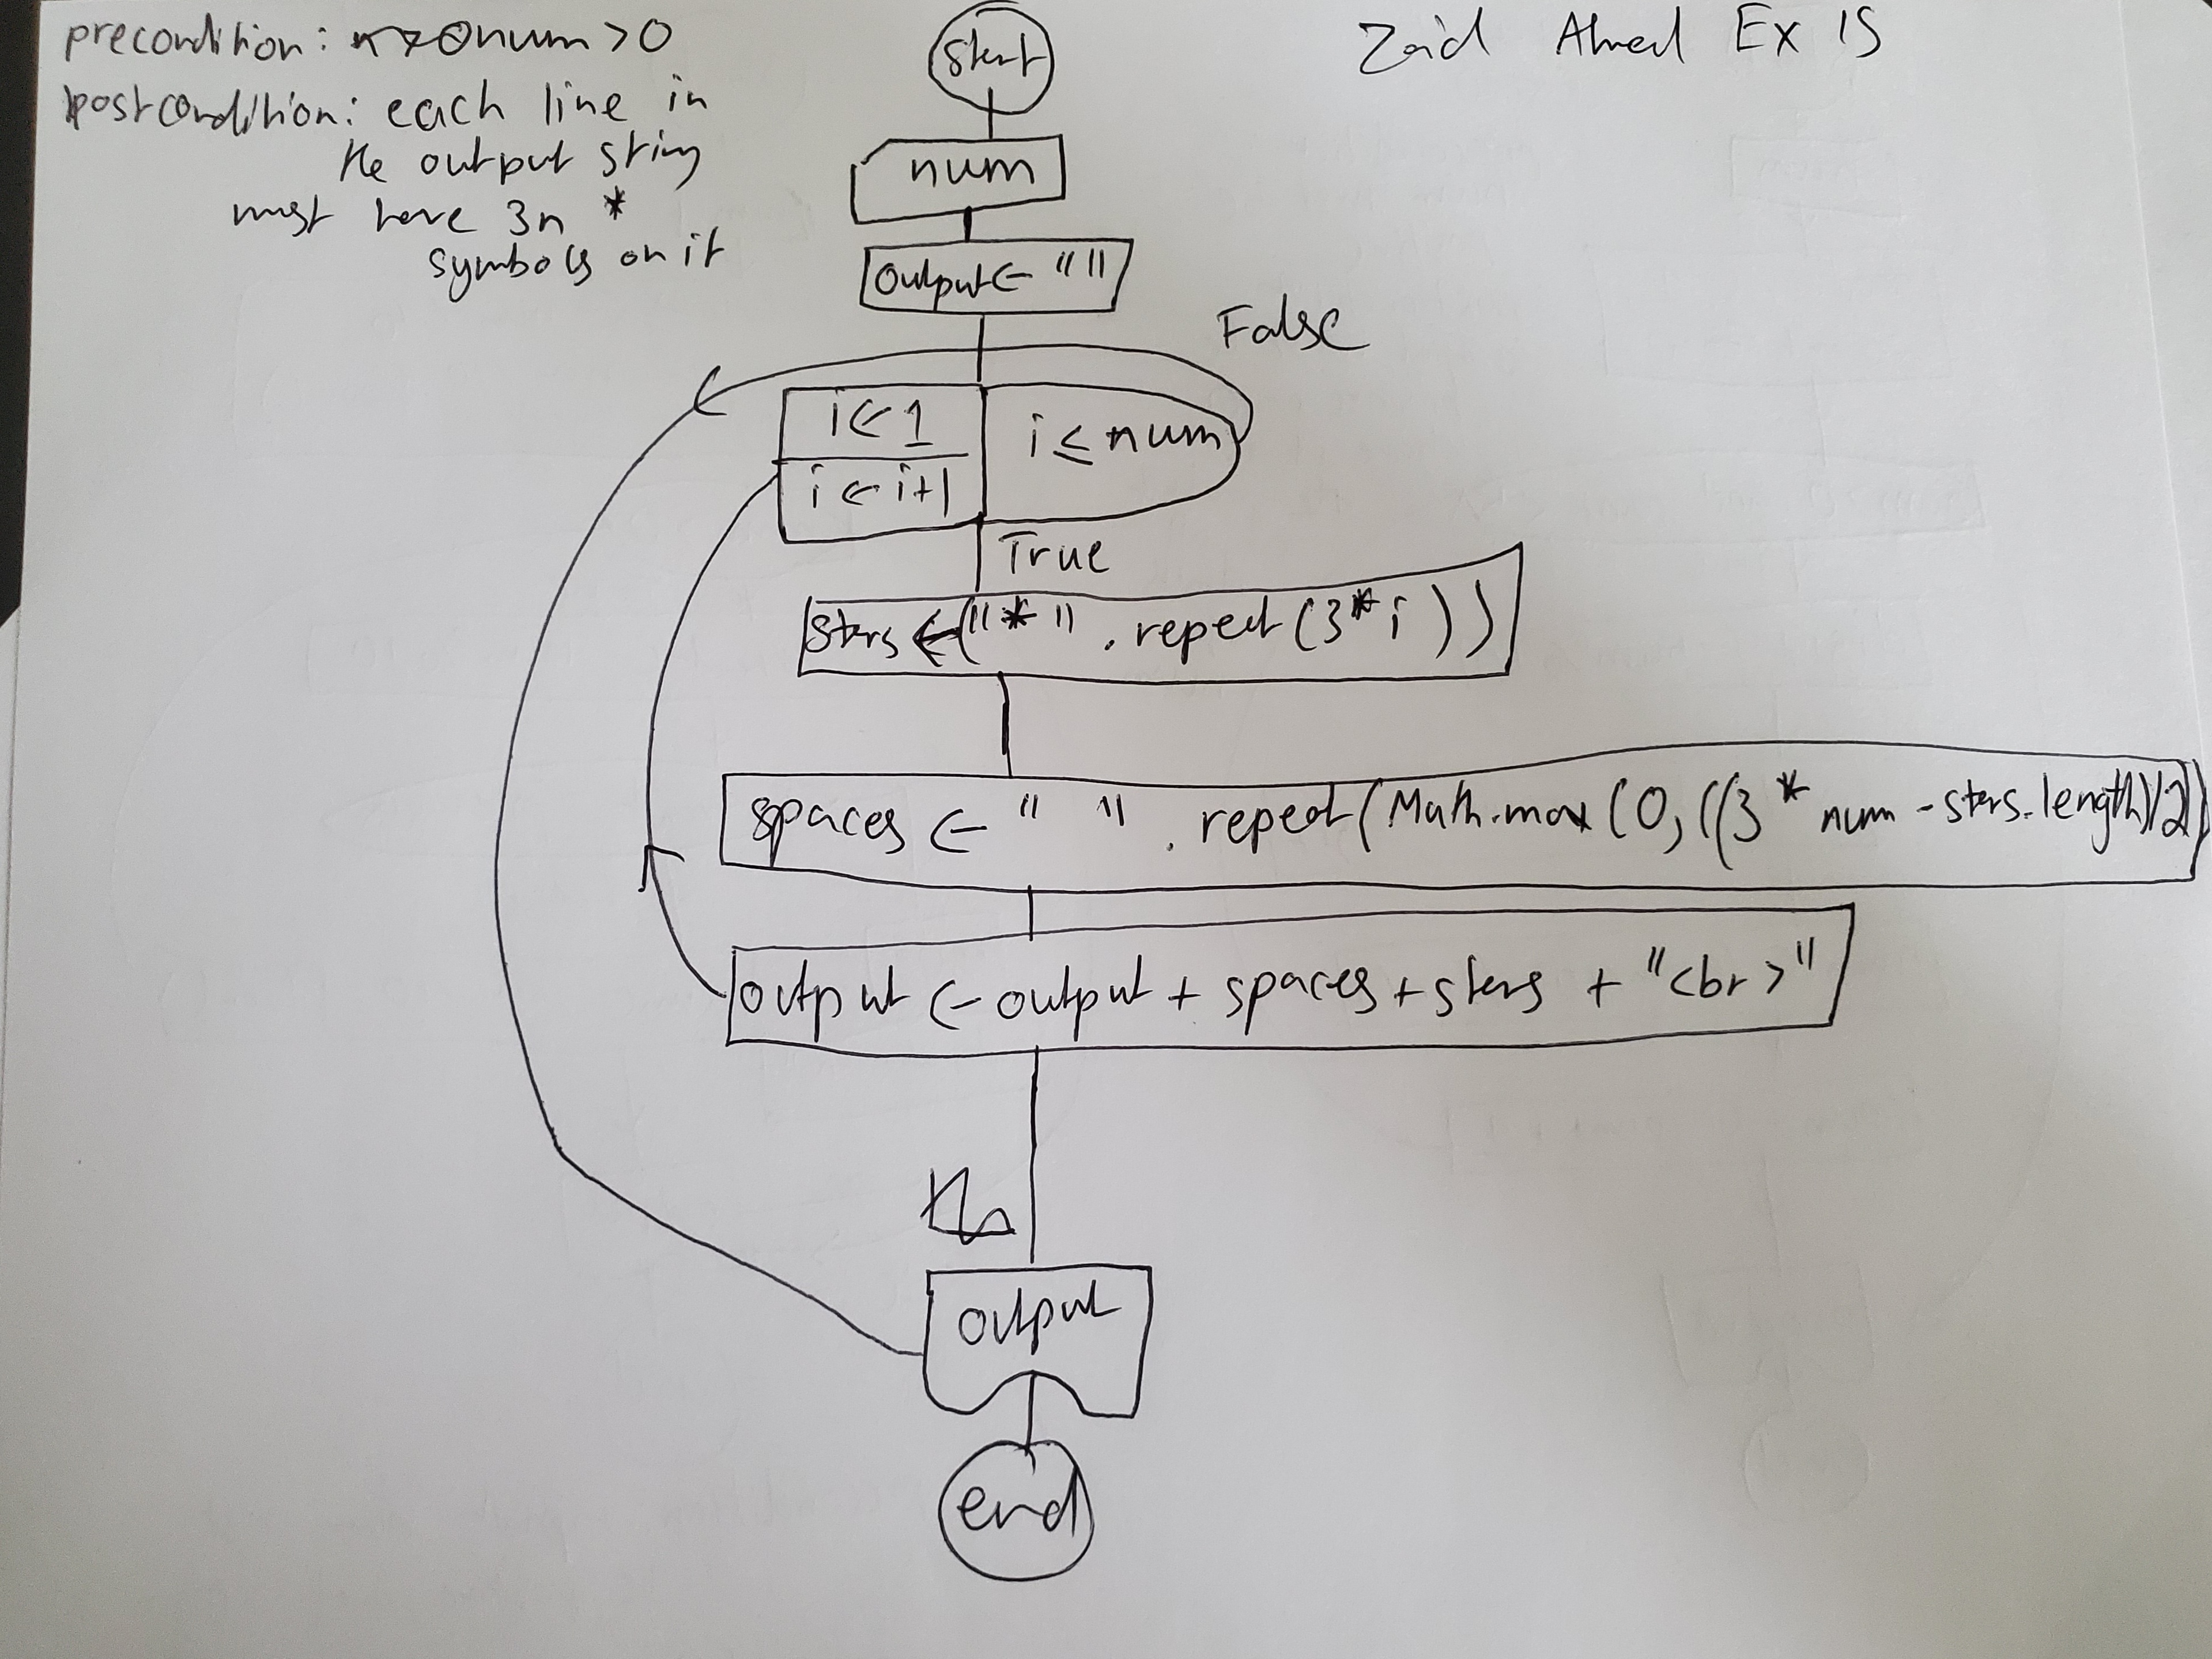 precondition: num > 0
postcondition: each line in
the output string
must have 3n *
symbols on it
Zaid Ahmed Ex 15
Start
num
Output ← " "
False
i ← 1
i ← i+1
i ≤ num
True
stars ← ("*" .repeat (3*i))
spaces ← " " .repeat (Math.max (0, ((3 * num - stars.length)/2)
output ← output + spaces + stars + "<br>"
output
end